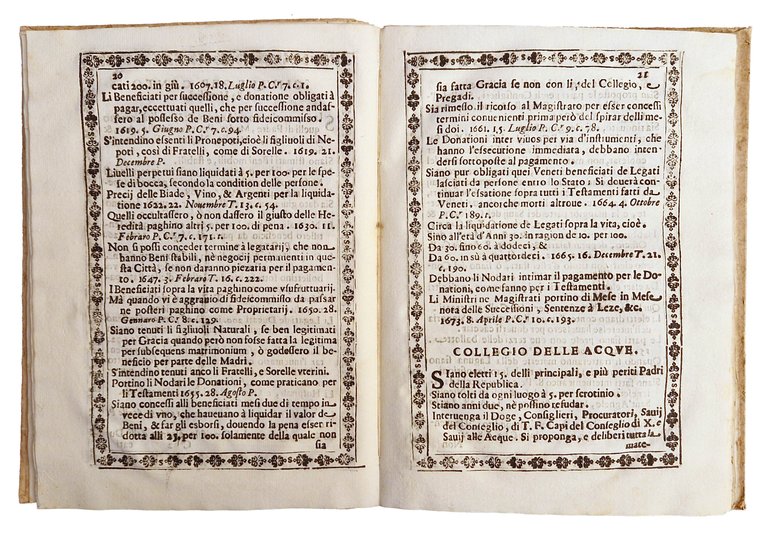 20
cati 200. in giù. 1607. 18. Luglio P. C.º 7. c. 1.
Li Beneficiati per successione, e donatione obligati à
pagar, eccettuati quelli, che per successiono andas-
sero al possesso de Beni sotto fideicommisso.
1619. 5. Giugno P. C.º 7. c. 94.
S'intendino esenti li Pronepoti, cioè li figliuoli di Ne-
poti, così di Fratelli, come di Sorelle. 1619. 21.
Decembre P.
Liuelli perpetui siano liquidati à 5. per 100. per le spe-
se di bocca, secondo la condition delle persone.
Precij delle Biade, Vino, & Argenti per la liquida-
tione 1622. 22. Nouembre T. 13. c. 54.
Quelli occultassero, ò non dassero il giusto delle He-
redità paghino altri 5. per 100. di pena. 1630. 11.
Febraro P. C.º 7. c. 171. t.
Non si possi conceder termine à legatarij, che non
hanno Beni stabili, nè negocij permanenti in que-
sta Città, se non daranno piezaria per il pagamen-
to. 1647. 3. Febraro T. 16. c. 222.
I Beneficiati sopra la vita paghino come vsufruttuarij.
Mà quando vi è aggrauio di fideicommisso da passar
ne posteri paghino come Proprietarij. 1650. 28.
Gennaro P. C.º 8. c. 129.
Siano tenuti li figliuoli Naturali, se ben legitimati
per Gracia quando però non fosse fatta la legitima
per subsequens matrimonium, ò godessero il be-
neficio per parte delle Madri.
S'intendino tenuti anco li Fratelli, e Sorelle vterini.
Portino li Nodari le Donationi, come praticano per
li Testamenti 1655. 28. Agosto P.
Siano concessi alli beneficiati mesi due di tempo in
vece di vno, che haueuano à liquidar il valor de
Beni, & far gli esborsi, douendo la pena esser ri-
dotta alli 25. per 100. solamente della quale non
sia
21
sia fatta Gracia se non con li del Collegio,
Pregadi.
Sia rimesso il ricorso al Magistrato per esser concessi
termini conuenienti prima però del spirar delli me-
si doi. 1661. 15. Luglio P. C.º 9. c. 78.
Le Donationi inter viuos per via d'instrumenti, che
hanno l'essecutione immediata, debbano inten-
dersi sottoposte al pagamento.
Siano pur obligati quei Veneti beneficati de Legati
lasciati da persone entro lo Stato; Si douerà con-
tinuar l'essatione sopra tutti i Testamenti fatti da
Veneti, ancorche morti altroue. 1664. 4. Ottobre
P. C.º 189. t.
Circa la liquidatione de Legati sopra la vita, cioè.
Sino all'età d'Anni 30. in ragion de 10. per 100.
Da 30. fino 60. à dodeci, &
Da 60. in sù à quattordeci. 1665. 16. Decembre T. 21.
c. 190.
Debbano li Nodari intimar il pagamento per le Do-
nationi, come fanno per i Testamenti.
Li Ministri ne Magistrati portino di Mese in Mese
nota delle Successioni, Sentenze à Leze, &c.
1673. 8. Aprile P. C.º 10. c. 193.
COLLEGIO DELLE ACQVE.
Siano eletti 15. delli principali, e più periti Padri
della Republica.
Siano tolti da ogni luogo à 5. per scrotinio.
Stiano anni due, nè possino refudar.
Interuenga il Doge, Consiglieri, Procuratori, Sauij
del Conseglio, di T. F. Capi del Conseglio di X. e
Sauij alle Acque. Si proponga, e deliberi tutta la
mate-